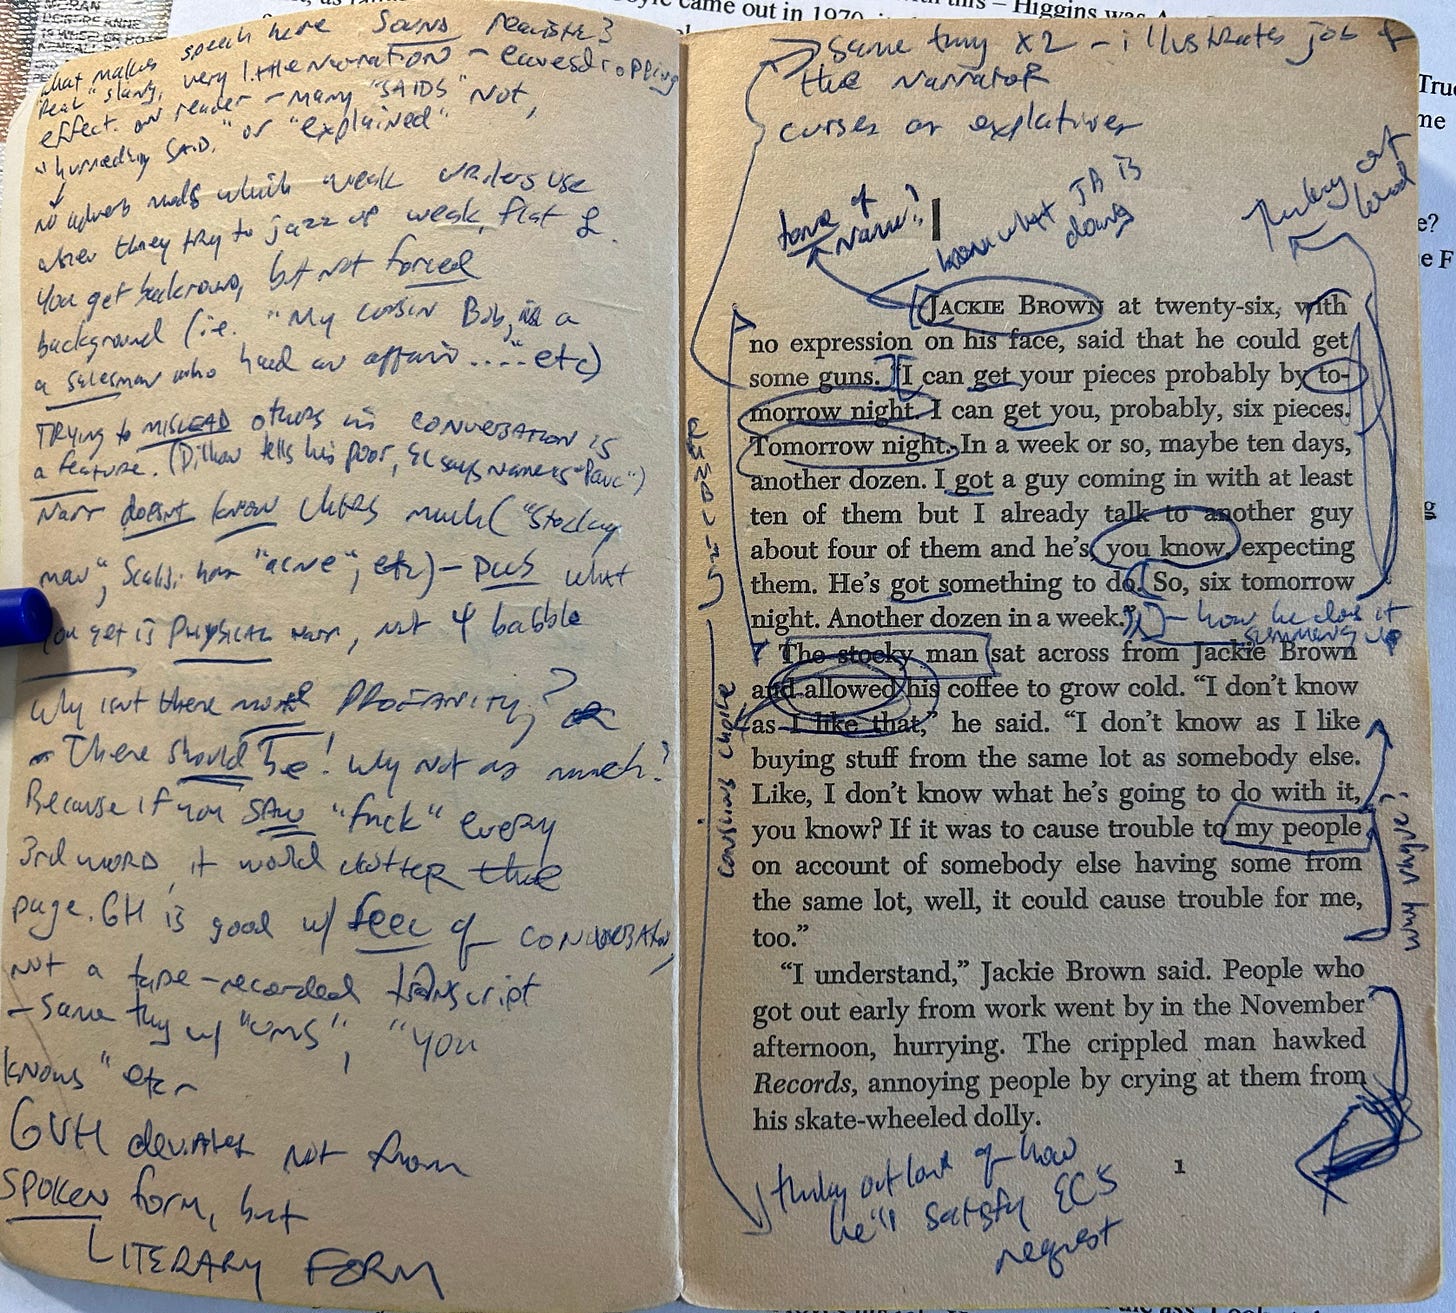 came out in 1970
this – Higgins was
what makes speech here sound realistic?
"Real" slang, very little narration – eavesdropping
effect on reader – many "SAIDS" not,
"hurriedly SAID" or "explained"
no adverb mods which weak writers use
when they try to jazz up weak, flat
You get background, but not forced
background (i.e. "My cousin Bob, is a
a salesman who had an affair ...." etc)
TRYING to MISLEAD others in conversation is
a feature. (Dillon tells his poor, EC says name is "Paul")
Narr doesn't know chars much ("Stocky
man", Scalisi has "acne", etc) – plus what
you get is PHYSICAL narr, not babble
Why isn't there more PROFANITY?
– There should be! Why not as much?
Because if you SAW "fuck" every
3rd word, it would clutter the
page. GH is good w/ feel of conversation,
not a tape-recorded transcript
– same thing w/ "UMS", "you
knows" etc
GVH deviates not from
SPOKEN form, but
LITERARY FORM
same thing x2 – illustrates job of
the narrator
curses or expletives
tone of
narr?
know what JB is
doing
thinking out
loud
1
JACKIE BROWN at twenty-six, with
no expression on his face, said that he could get
some guns. "I can get your pieces probably by to-
morrow night. I can get you, probably, six pieces.
Tomorrow night. In a week or so, maybe ten days,
another dozen. I got a guy coming in with at least
ten of them but I already talk to another guy
about four of them and he's, you know, expecting
them. He's got something to do. So, six tomorrow
night. Another dozen in a week."
– how he does it
summing up
The stocky man sat across from Jackie Brown
and allowed his coffee to grow cold. "I don't know
as I like that," he said. "I don't know as I like
buying stuff from the same lot as somebody else.
Like, I don't know what he's going to do with it,
you know? If it was to cause trouble to my people
on account of somebody else having some from
the same lot, well, it could cause trouble for me,
too."
conscious choice
"I understand," Jackie Brown said. People who
got out early from work went by in the November
afternoon, hurrying. The crippled man hawked
Records, annoying people by crying at them from
his skate-wheeled dolly.
1
thinking out loud of how
he'll satisfy EC's
request